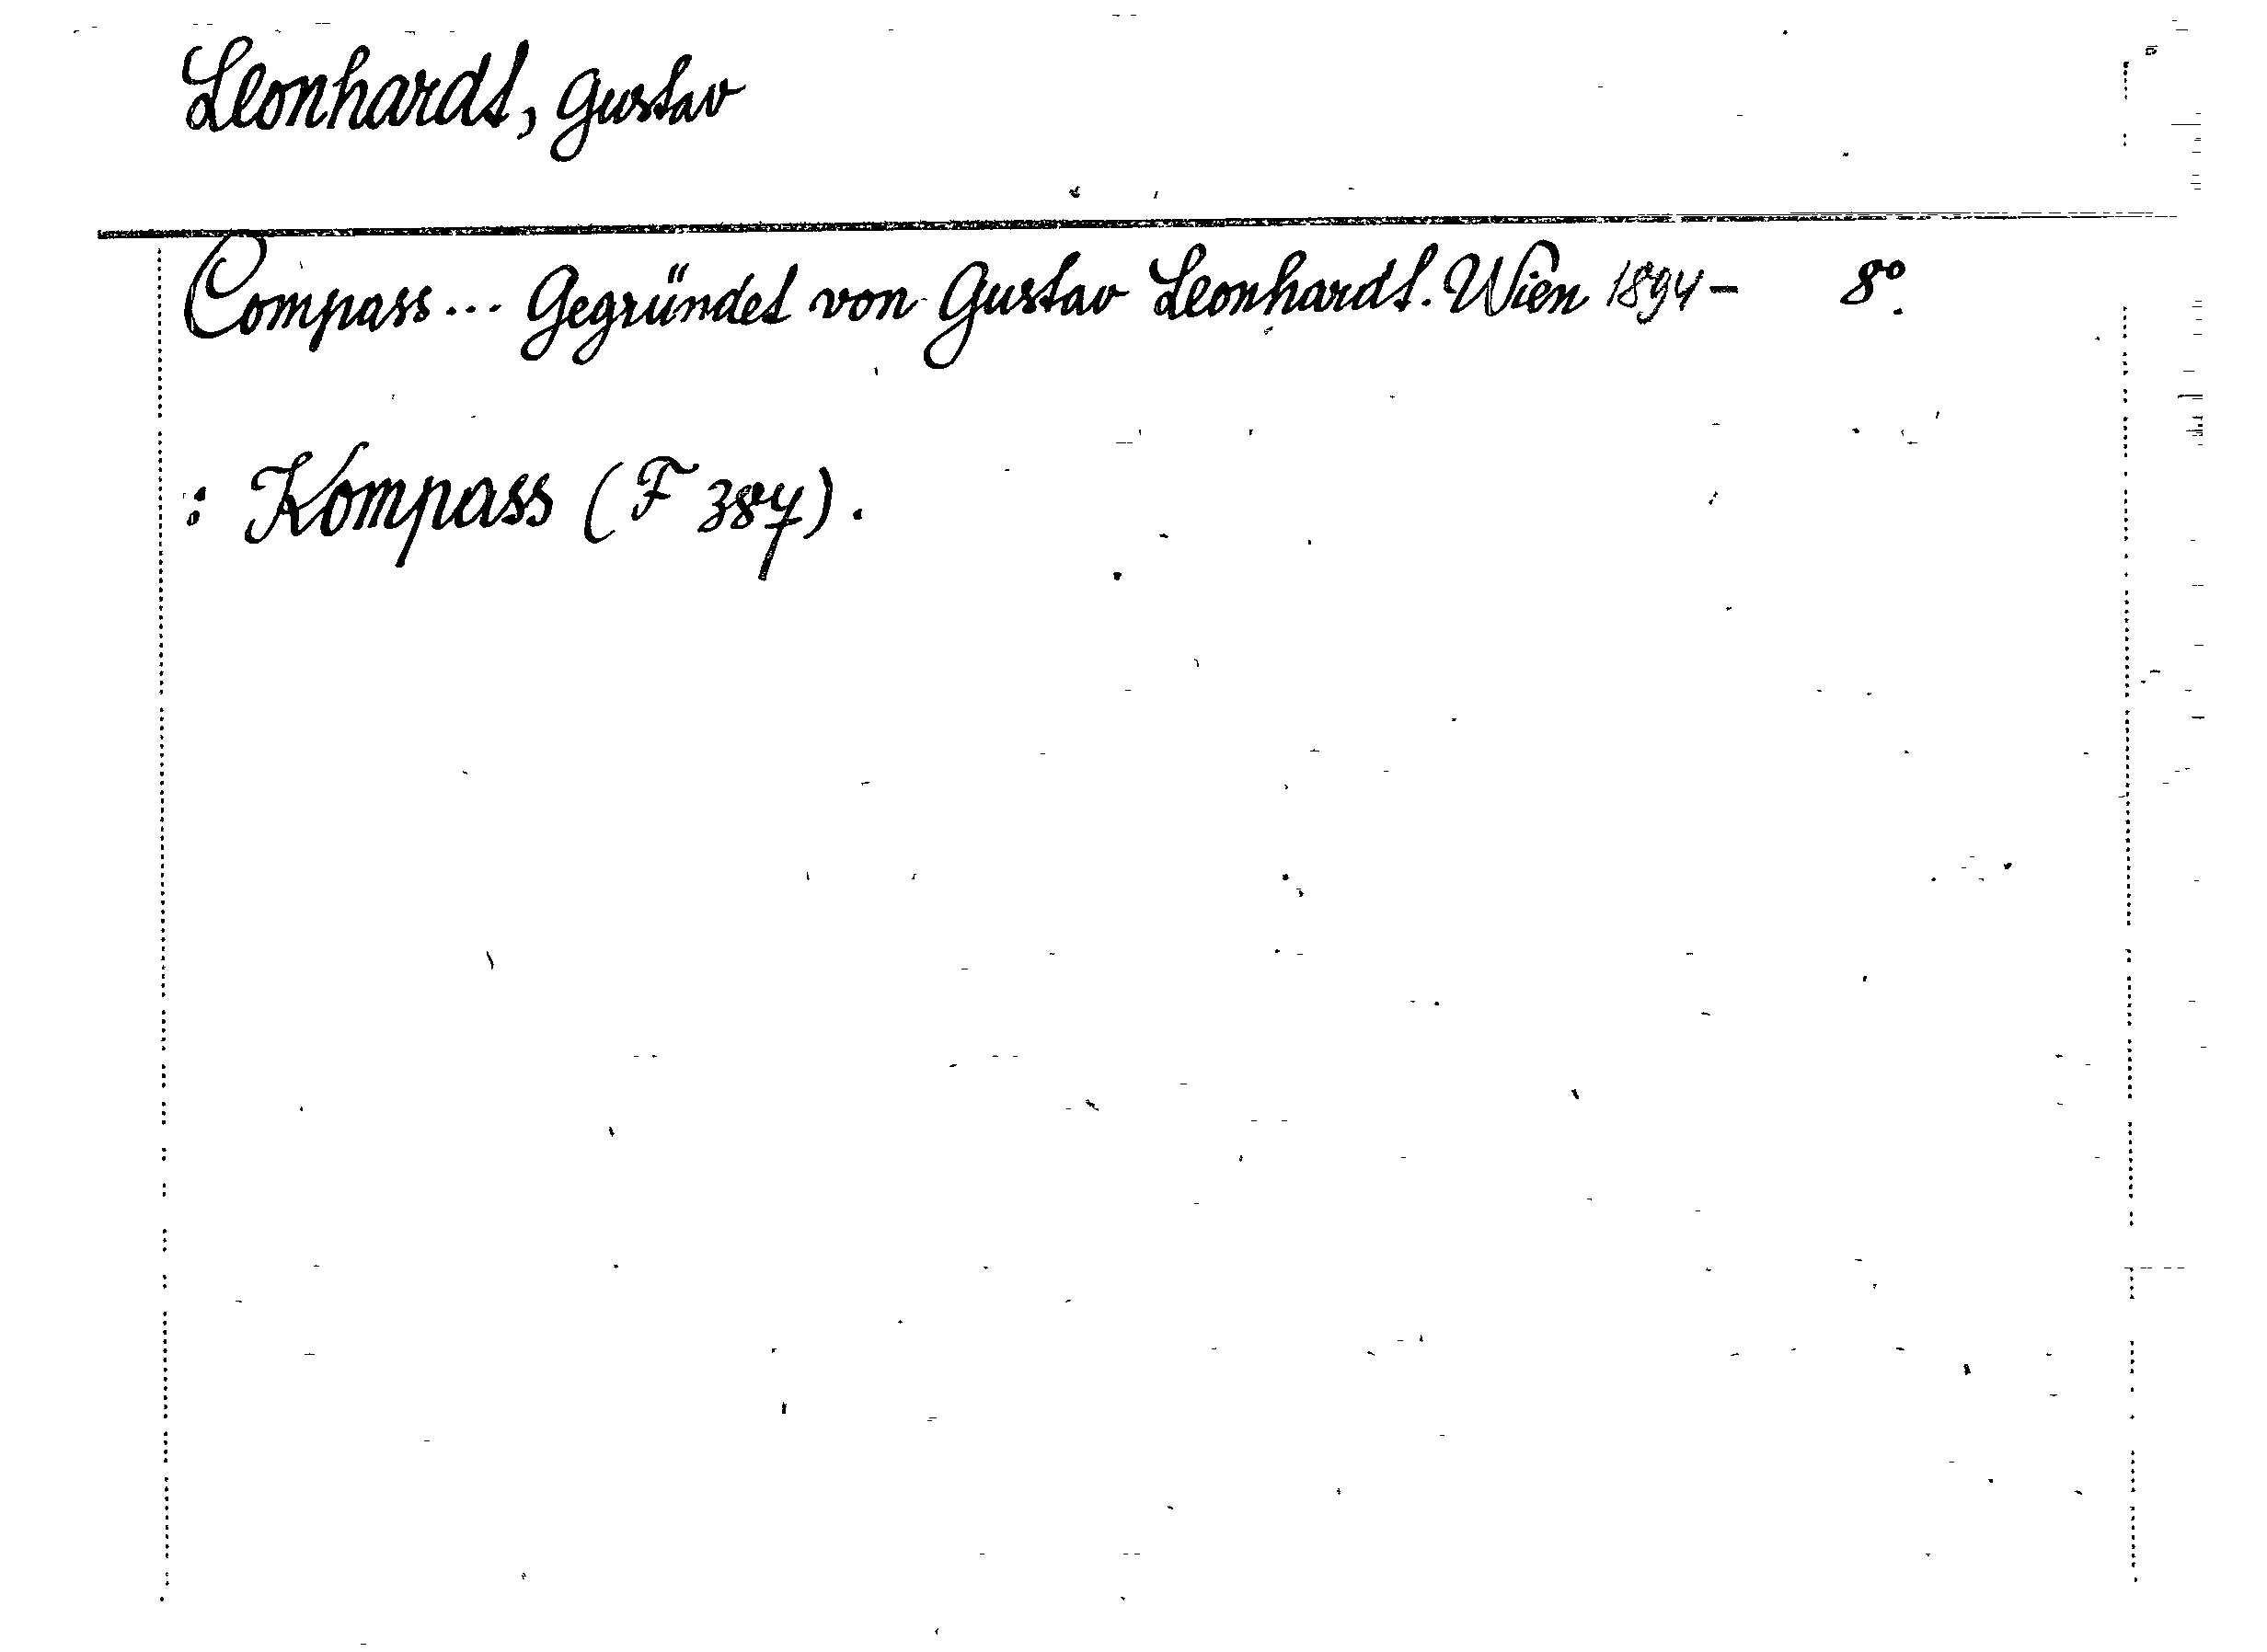 Leonhardt, Gustav
Compass... Gegründet von Gustav Leonhardt. Wien 1894- 8°.
: Kompass (F 387).